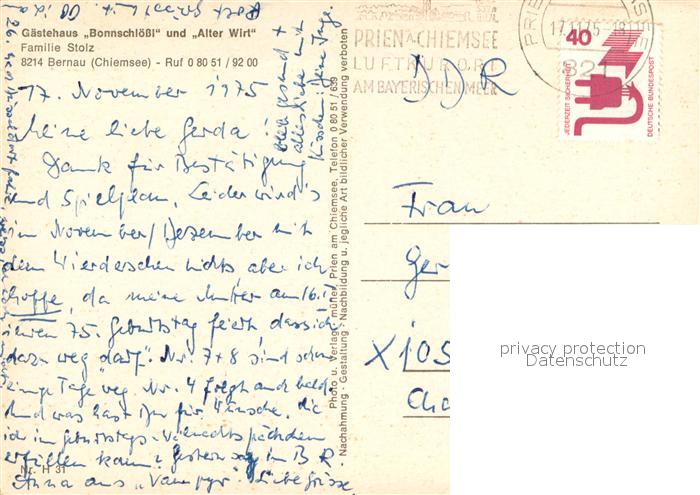 Gästehaus „Bonnschlößl" und „Alter Wirt"
Familie Stolz
8214 Bernau (Chiemsee) - Ruf 0 80 51 / 92 00
17. November 1975
Meine liebe Gerda!
Dank für Bestätigung
und Spielplan. Leider wird's
im November/Dezember mit
dem Wiedersehen nichts, aber ich
hoffe, da meine Mutter am 16.1.
ihren 75. Geburtstag feiert, dass ich
dazu weg "darf". Nr. 7+8 sind schon
einige Tage weg. Nr. 4 folgt auch bald.
Und was hast Du für Wünsche, die
ich im Geburtstags-Weihnachtspäckchen
erfüllen kann? Gestern sang im BR
Anna aus „Vampyr". Liebe Grüsse
Nr. H 31
bleib gesund +
alles Liebe mit
Photo u. Verlag: müner, Prien am Chiemsee, Telefon 0 80 51 / 639
Nachahmung - Gestaltung - Nachbildung u. jegliche Art bildlicher Verwendung verboten
PRIEN A CHIEMSEE
LUFTKURORT
AM BAYERISCHEN MEER
17.11.75-18
821
40
JEDERZEIT SICHERHEIT
DEUTSCHE BUNDESPOST
DDR
Frau
Ger
X 105
privacy protection
Datenschutz